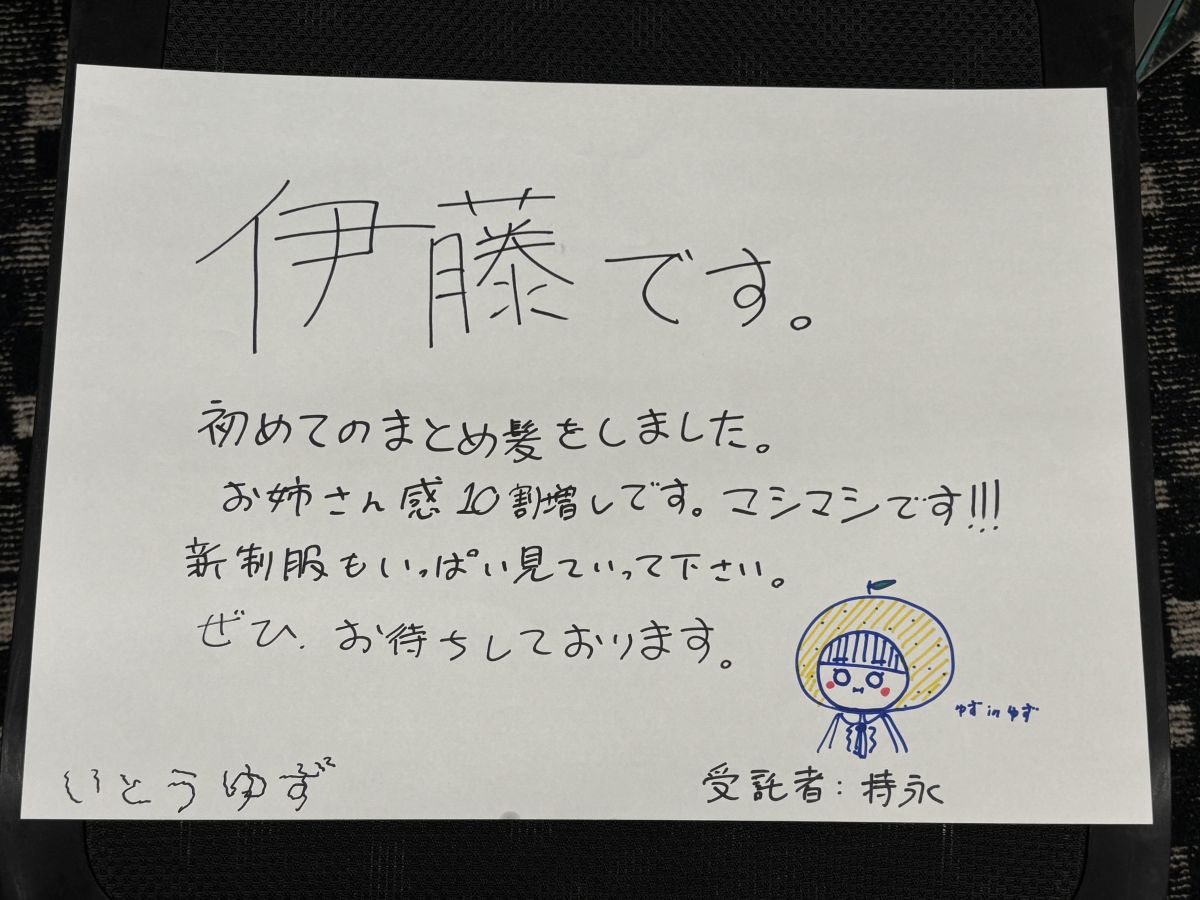 伊藤です。
初めてのまとめ髪をしました。
お姉さん感10割増しです。マシマシです!!!
新制服もいっぱい見ていって下さい。
ぜひ、お待ちしております。
ゆず in ゆず
いとうゆず
受託者:持永